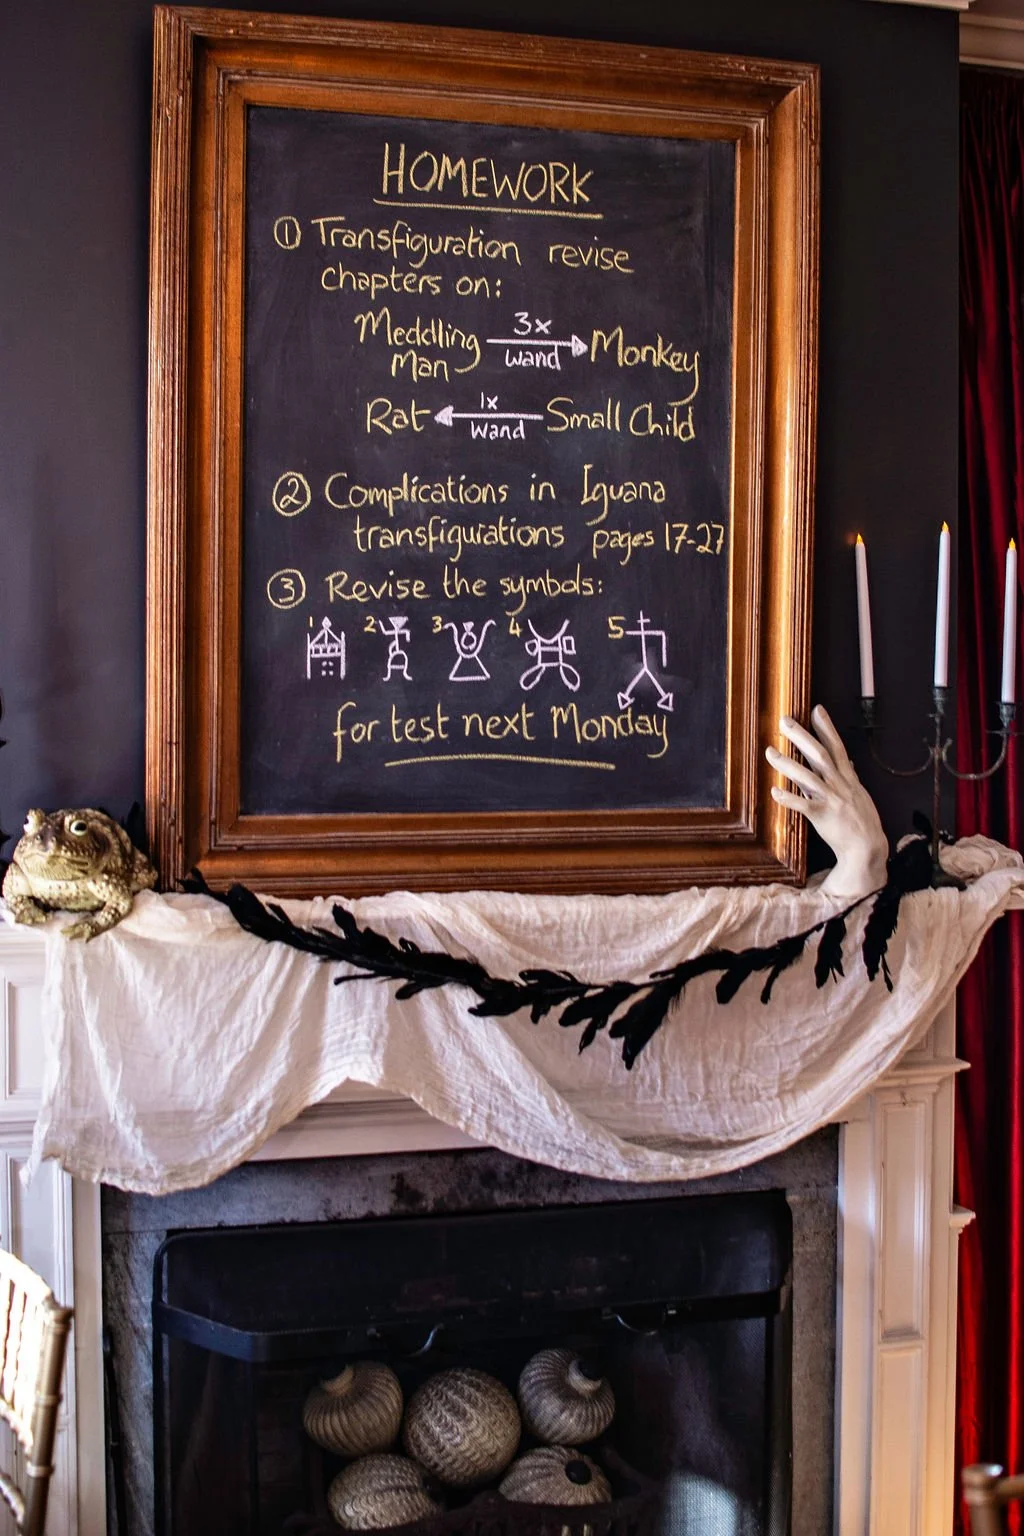 HOMEWORK
① Transfiguration revise
chapters on:
Meddling 3x Monkey
Man wand
Rat 1x Small Child
wand
② Complications in Iguana
transfigurations pages 17-27
③ Revise the symbols:
1 2 3 4 5
for test next Monday